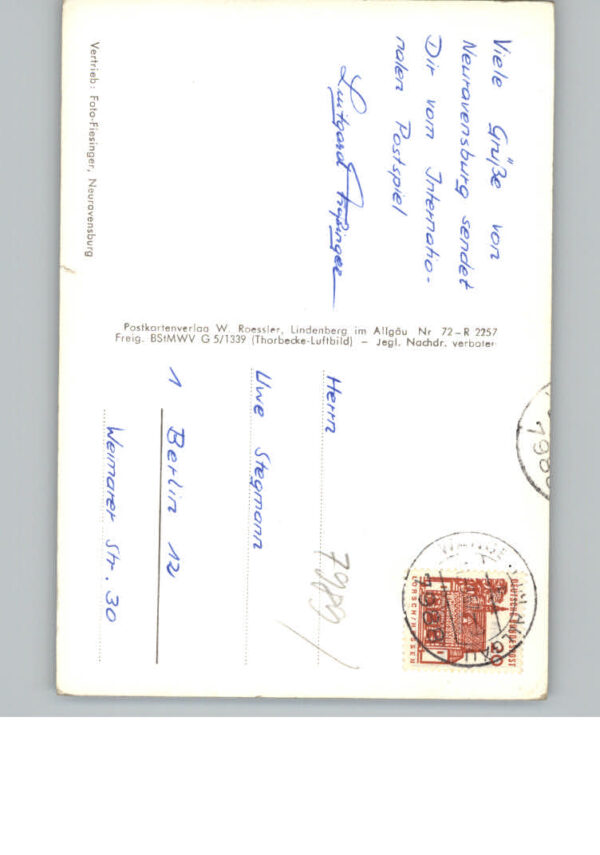 Viele Grüße von
Neuravensburg sendet
Dir vom Internatio-
nalen Postspiel
Luitgard
Vertrieb: Foto-Fiesinger, Neuravensburg
Postkartenverlag W. Roessler, Lindenberg im Allgäu Nr 72-R 2257
Freig. BStMWV G 5/1339 (Thorbecke-Luftbild) – Jegl. Nachdr. verboten
Herrn
Uwe Stegmann
1 Berlin 12
Weimarer Str. 30
7989
WANGEN IM ALLGÄU
7988
DEUTSCHE BUNDESPOST
LORSCH/HESSEN
20